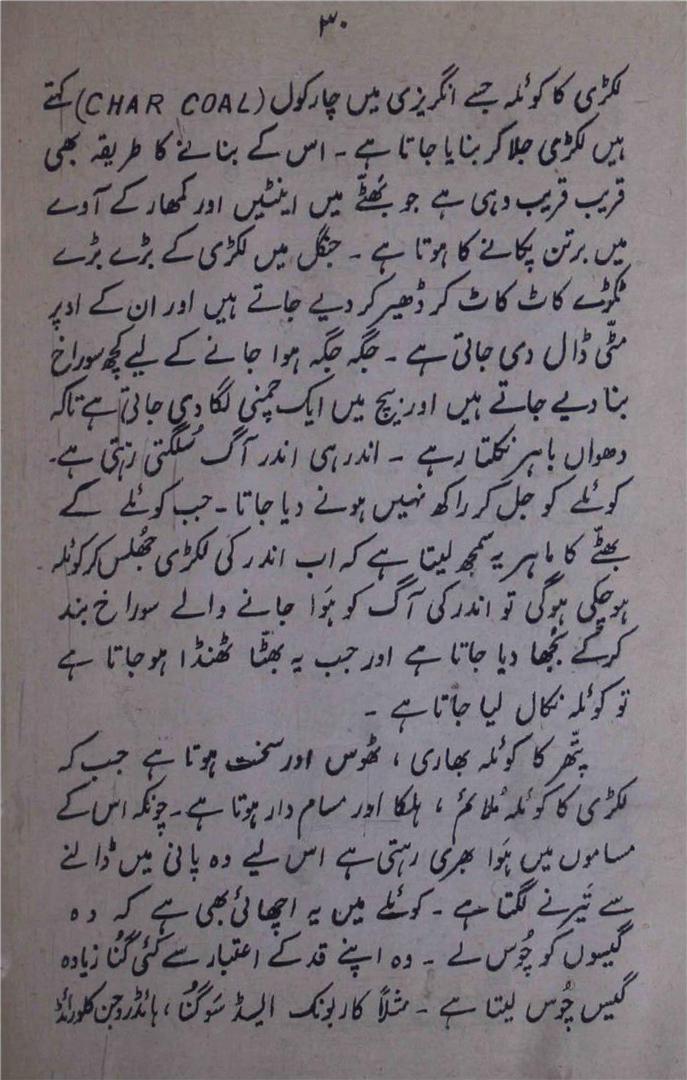 ۳۰
لکڑی کا کوئلہ جسے انگریزی میں چارکول (CHAR COAL) کہتے
ہیں لکڑی جلا کر بنایا جاتا ہے۔ اس کے بنانے کا طریقہ بھی
قریب قریب وہی ہے جو بھٹّے میں اینٹیں اور کمھار کے آوے
میں برتن پکانے کا ہوتا ہے۔ جنگل میں لکڑی کے بڑے بڑے
ٹکڑے کاٹ کاٹ کر ڈھیر کر دیے جاتے ہیں اور ان کے اوپر
مٹّی ڈال دی جاتی ہے۔ جگہ جگہ ہوا جانے کے لیے کچھ سوراخ
بنا دیے جاتے ہیں اور بیچ میں ایک چمنی لگا دی جاتی ہے تاکہ
دھواں باہر نکلتا رہے۔ اندر ہی اندر آگ سُلگتی رہتی ہے۔
کوئلے کو جل کر راکھ نہیں ہونے دیا جاتا۔ جب کوئلے کے
بھٹّے کا ماہر یہ سمجھ لیتا ہے کہ اب اندر کی لکڑی جُھلس کر کوئلہ
ہو چکی ہوگی تو اندر کی آگ کو ہَوا جانے والے سوراخ بند
کرکے بُجھا دیا جاتا ہے اور جب یہ بھٹّا ٹھنڈا ہو جاتا ہے
تو کوئلہ نکال لیا جاتا ہے۔
پتّھر کا کوئلہ بھاری، ٹھوس اور سخت ہوتا ہے جب کہ
لکڑی کا کوئلہ مُلائم، ہلکا اور مسام دار ہوتا ہے۔ چونکہ اس کے
مساموں میں ہَوا بھری رہتی ہے اس لیے وہ پانی میں ڈالنے
سے تَیرنے لگتا ہے۔ کوئلے میں یہ اچھائی بھی ہے کہ وہ
گیسوں کو چُوس لے۔ وہ اپنے قد کے اعتبار سے کئی گُنا زیادہ
گیس چُوس لیتا ہے۔ مثلاً کاربونک ایسڈ سَوگُنا، ہائڈروجن کلورائڈ